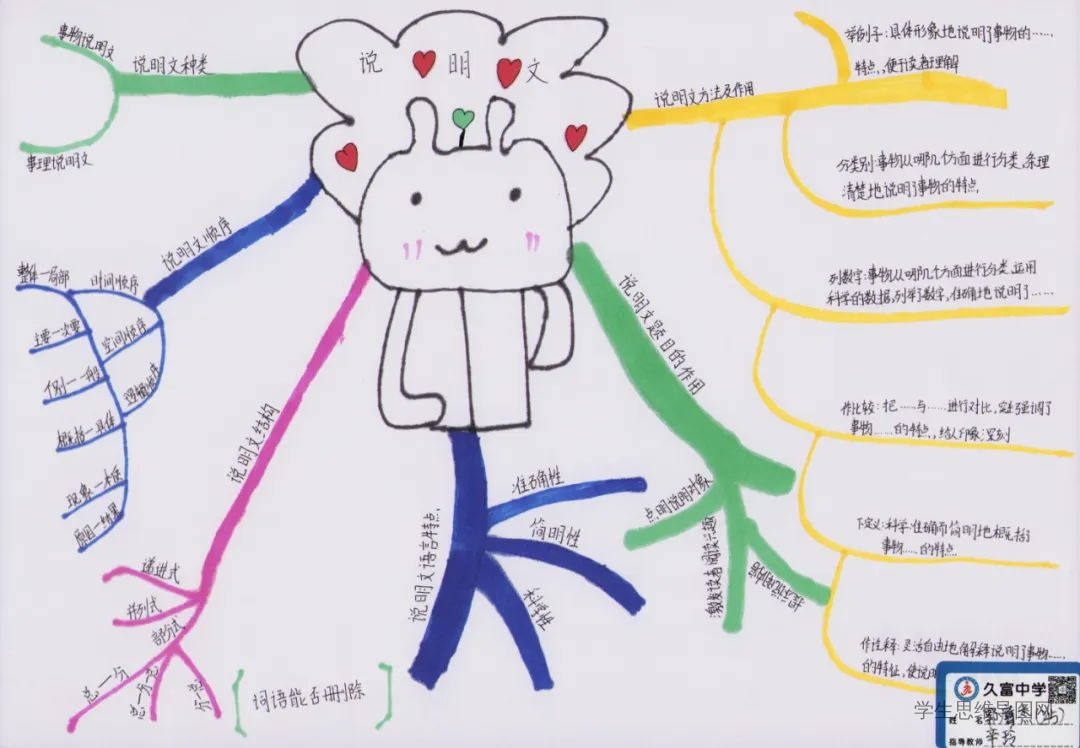 说明文
说明文种类
事物说明文
事理说明文
说明文顺序
时间顺序
空间顺序
逻辑顺序
整体一局部
主要一次要
个别一一般
概括一具体
现象一本质
原因一结果
说明文结构
递进式
并列式
部分式
总一分
总一分一总
分一总
说明文语言特点
准确性
简明性
科学性
词语能否删除
说明文题目的作用
点明说明对象
激发读者阅读兴趣
说明文方法及作用
举例子:具体形象地说明了事物的……
特点,,便于读者理解
分类别:事物从哪几个方面进行分类,条理
清楚地说明了事物的特点,
列数字:事物从哪几个方面进行分类,运用
科学的数据,列举了数字,准确地说明了……
作比较:把……与……进行对比,突出强调了
事物……的特点,,给人印象深刻
下定义:科学准确而简明地概括了
事物……的特点
作诠释:灵活自由地解释说明了事物……
的特征,使说明
久富中学
学生思维导图网
姓 名
指导教师 辛玲